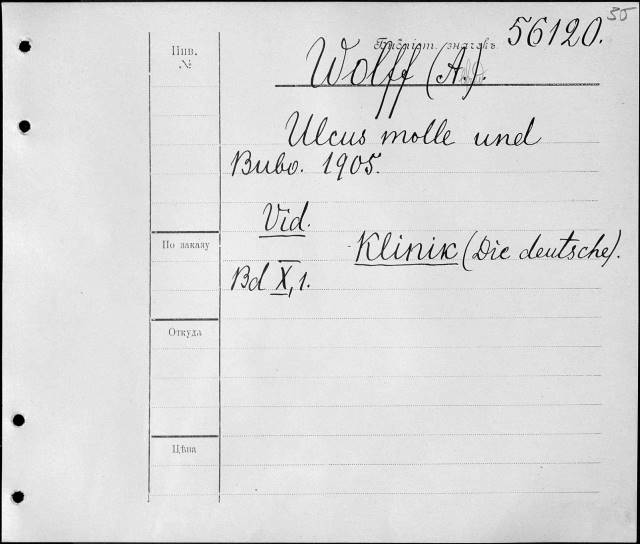 35
Инв. №
Библіот. значекъ. 56120.
Wolff (A.).
Ulcus molle und
Bubo. 1905.
Vid.
По заказу
Klinik (Die deutsche).
Bd X, 1.
Откуда
Цѣна